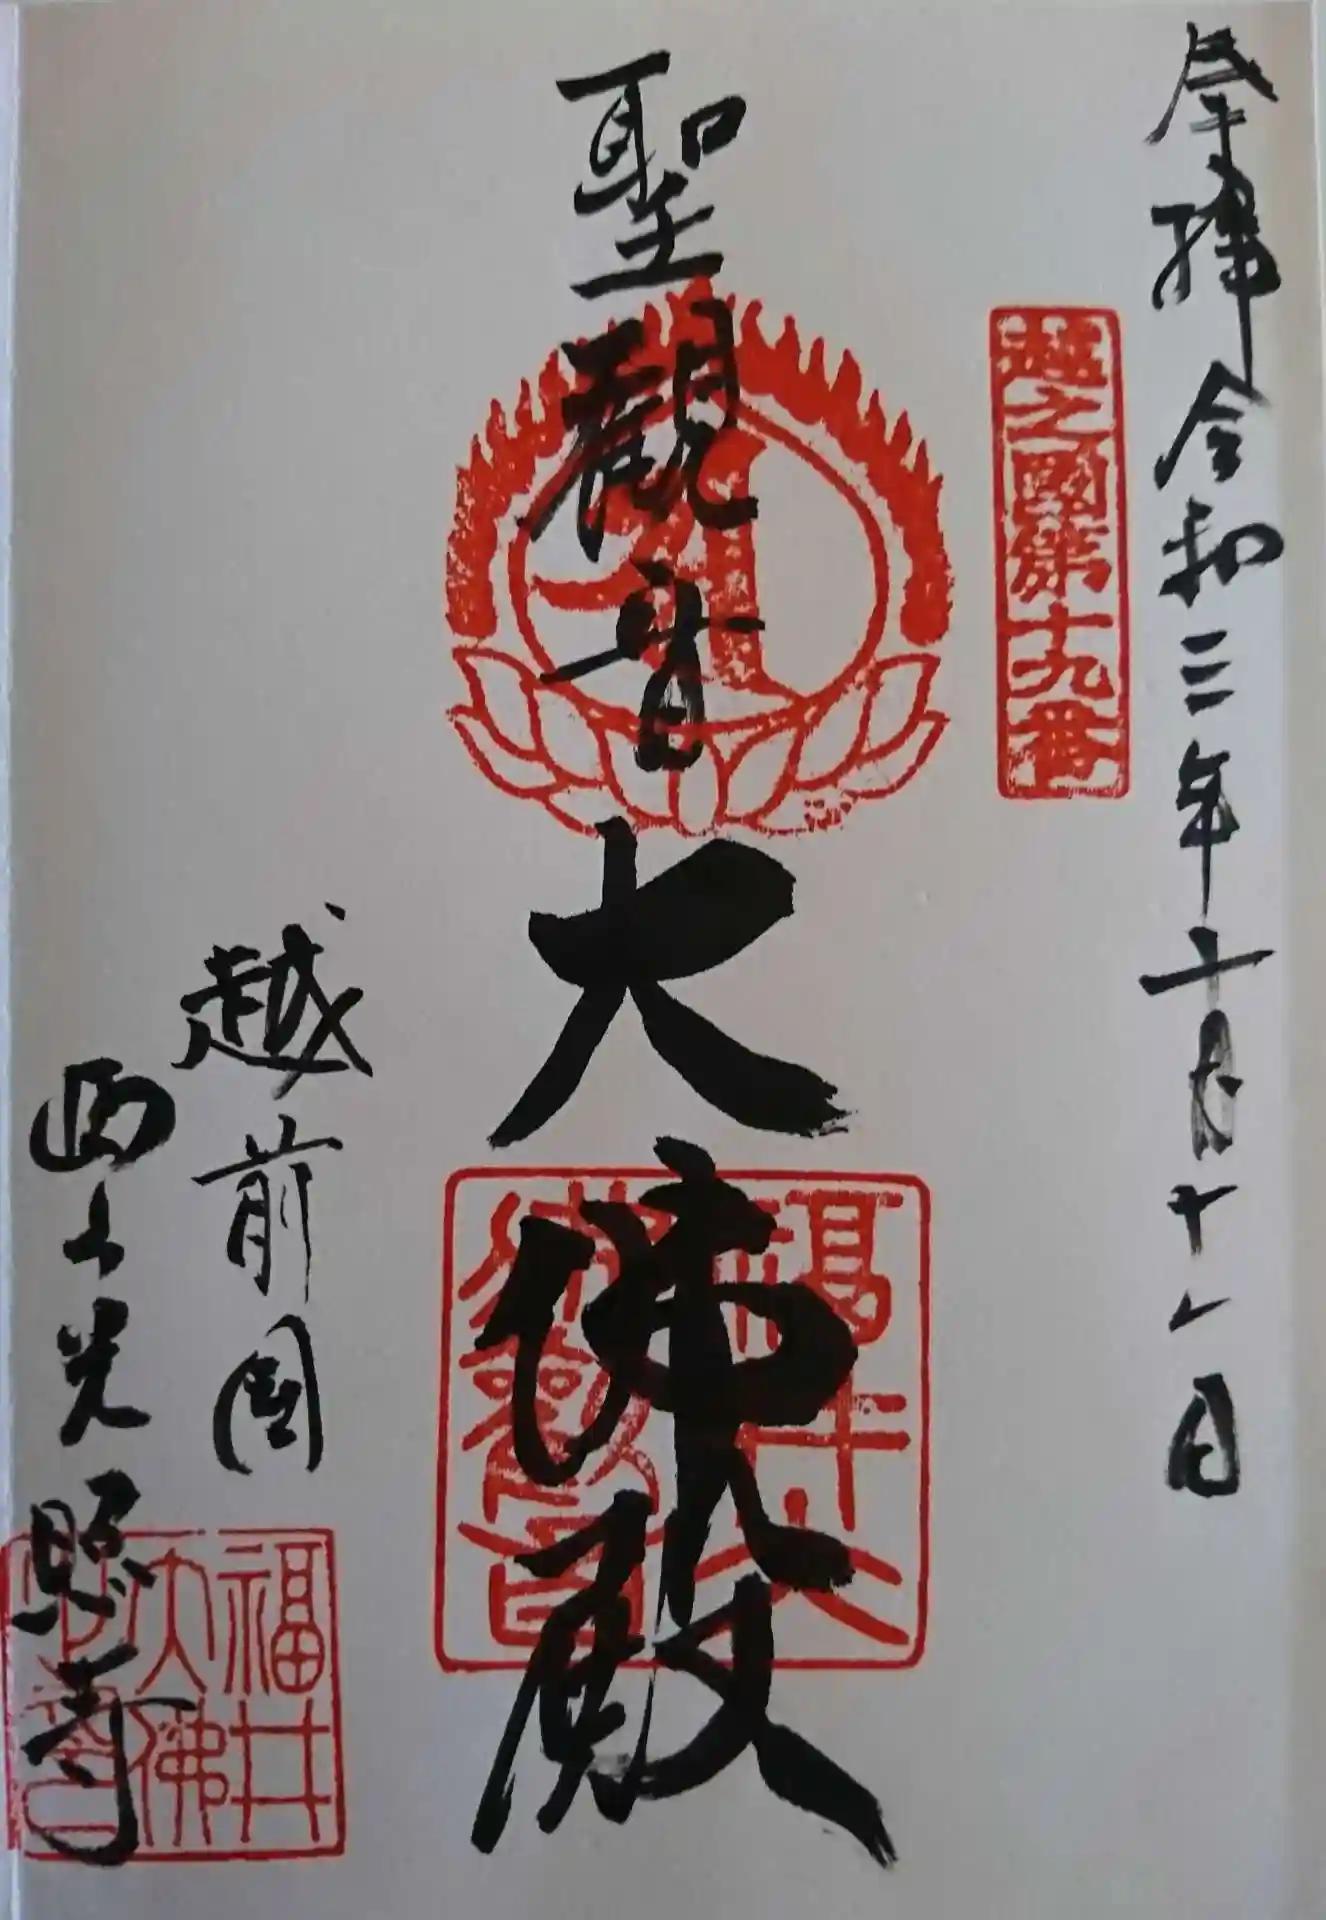 奉拝 令和三年十月十日
越之國第十九番
聖觀音
大佛殿
越前國
西山光照寺
福井
大佛